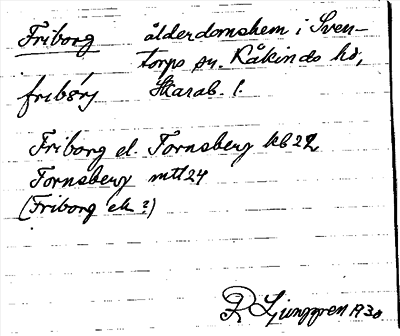 Friborg ålderdomshem i Sven-
torps sn. Kåkinds hd,
fribörj Skarab. l.
Friborg el. Tornsberg kb 22
Tornsberg mtl 24
(Friborg ek?)
R Ljunggren 1930.